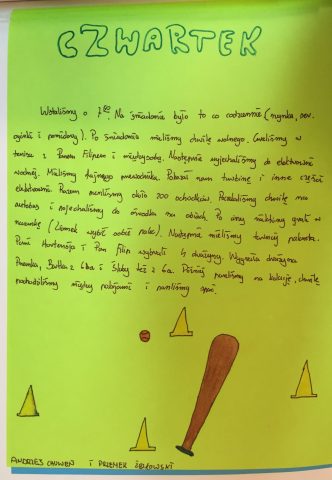 CZWARTEK
Wstaliśmy o 7:00. Na śniadanie było to co codziennie (szynka, ser,
ogórki i pomidory). Po śniadaniu mieliśmy chwilę wolnego. Graliśmy w
tenisa z Panem Filipem i między sobą. Następnie wyjechaliśmy do elektrowni
wodnej. Mieliśmy fajnego przewodnika. Pokazał nam turbinę i inne części
elektrowni. Razem weszliśmy około 200 schodków. Poczekaliśmy chwilę na
autobus i pojechaliśmy do ośrodka na obiad. Po inny graliśmy grać w
(Ziomek wybił sobie palec). Następnie mieliśmy turniej palanta.
Pani Hortensja i Pan Filip wybrali 4 drużyny. Wygrała drużyna
Przemka, Bartka z 6ba i też z 6a. Później poszliśmy na kolację, chwilę
pochodziliśmy między pokojami i poszliśmy spać.
ANDRZEJ I PRZEMEK